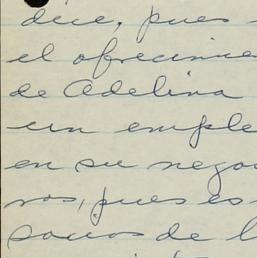 dice, pues
el ofrecimie
de Adelina
un emple
en su nego
ros, pues es
socios de l